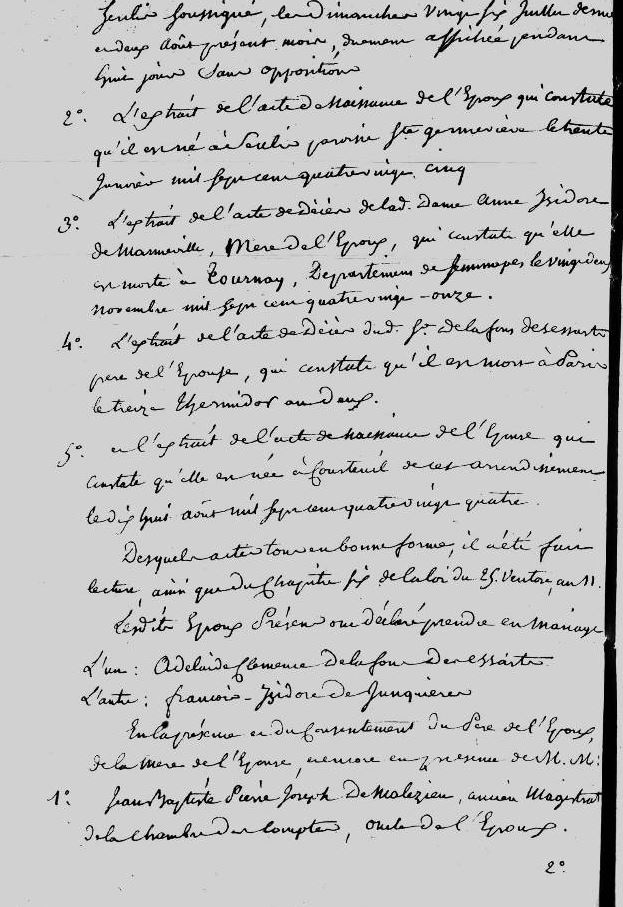 Senlis soussigné, les Dimanches vingt six Juillet dernier
et deux Août présent mois, dûement affichée pendant
huit jours sans opposition
2°. L'extrait de l'acte de Naissance de l'Epoux qui constate
qu'il est né à Senlis paroisse Ste genneviève le trente
Janvier mil sept cent quatre vingt cinq
3°. L'extrait de l'acte de décès de lad. Dame Anne Isidore
de Manneville, Mere de l'Epoux, qui constate qu'elle
est morte à Tournay, Departement de Jemmapes le vingt deux
novembre mil sept cent quatre vingt-onze.
4°. L'extrait de l'acte de décès dud. Sr. de la fons des essarts
pere de l'Epouse, qui constate qu'il est mort à Paris
le treize Thermidor an deux.
5°. et l'extrait de l'acte de naissance de l'Epouse qui
constate qu'elle est née à Courteuil de cet arrondissement
le dix huit août mil sept cent quatre vingt quatre.
Desquels actes tous en bonne forme, il a été fait
lecture, ainsi que du Chapitre six de la loi du 25. Ventose, an 11.
Lesdits Epoux Présens ont déclaré prendre en mariage
L'un : Adelaide Clemence de la fons Des essarts
L'autre : françois-Isidore de Junquieres
En la présence et du Consentement du Pere de l'Epoux,
de la mere de l'Epouse, et encore en presence de M. M:
1°. Jean Baptiste Pierre Joseph De Malezieu, ancien Magistrat
de la Chambre des Comptes, oncle de l'Epoux.
2°